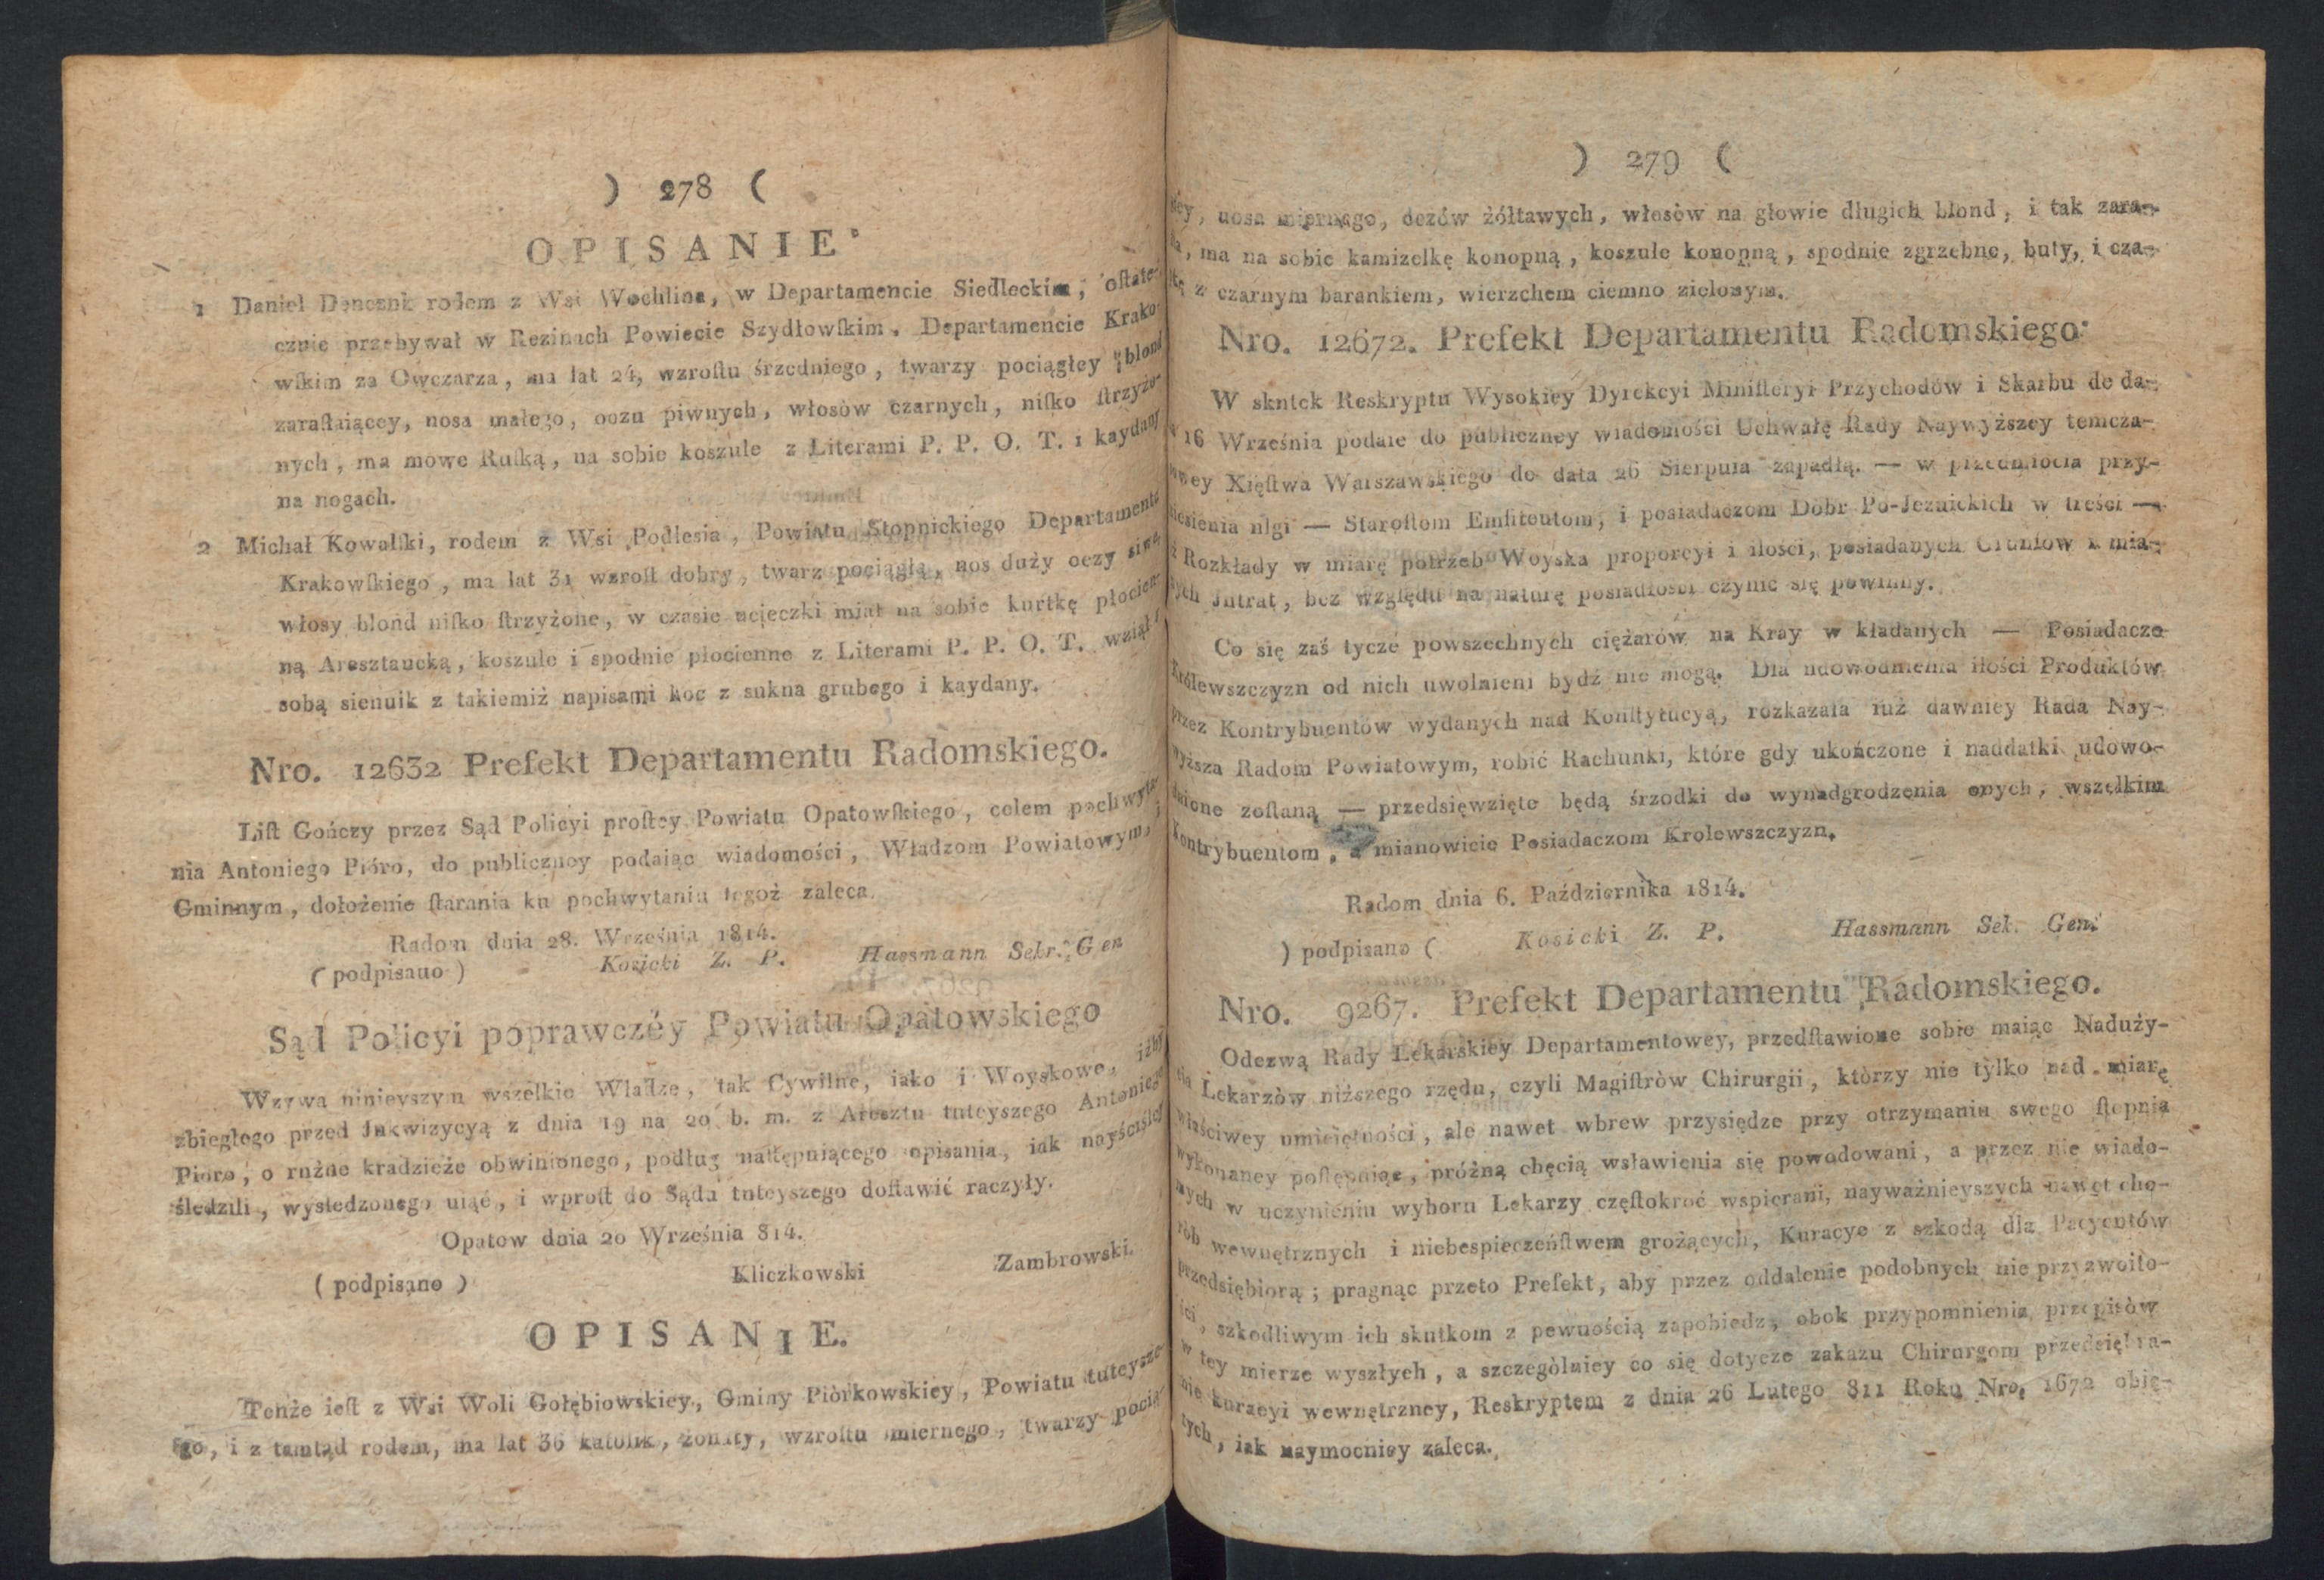 ) 278 (
OPISANIE
1 Daniel Denczuk rodem z Wsi Wochlina, w Departamencie Siedleckim, oſtate-
cznie przebywał w Rezinach Powiecie Szydłowſkim. Departamencie Krako-
wſkim za Owczarza, ma lat 24, wzroſtu śrzedniego, twarzy pociągłey blond
zaraſtaiącey, nosa małego, oczu piwnych, włosòw czarnych, niſko ſtrzyżo-
nych, ma mowe Ruſką, na sobie koszule z Literami P. P. O. T. i kaydany
na nogach.
2 Michał Kowalſki, rodem z Wsi Podlesia, Powiatu Stopnickiego Departamentu
Krakowſkiego, ma lat 31 wzroſt dobry, twarz pociągłą, nos duży oczy siwe,
włosy blond niſko ſtrzyżone, w czasie ucieczki miał na sobie kurtkę płocien-
ną Aresztancką, koszule i spodnie płocienne z Literami P. P. O. T. wziął z
sobą siennik z takiemiż napisami koc z sukna grubego i kaydany.
Nro. 12632 Prefekt Departamentu Radomskiego.
Liſt Gończy przez Sąd Policyi proſtey Powiatu Opatowſkiego, celem pochwyta-
nia Antoniego Pióro, do publiczney podaiąc wiadomości, Władzom Powiatowym,
Gminnym, dołożenie ſtarania ku pochwytaniu tegoż zaleca.
Radom dnia 28. Września 1814.
( podpisano ) Kosicki Z. P. Hassmann Sekr. Gen
Sąd Policyi poprawczéy Powiatu Opatowskiego
Wzywa ninieyszym wszelkie Władze, tak Cywilne, iako i Woyskowe, iżby
zbiegłego przed Inkwizycyą z dnia 19 na 20 b. m. z Aresztu tuteyszego Antoniego
Pióro, o rużne kradzieże obwinionego, podług naſtępniącego opisania, iak nayściśley
śledzili, wyśledzonego uiąć, i wproſt do Sądu tuteyszego doſtawić raczyły.
Opatow dnia 20 Września 814.
( podpisano ) Kliczkowski Zambrowski.
OPISANIE.
Tenże ieſt z Wsi Woli Gołębiowskiey, Gminy Piòrkowskiey, Powiatu tuteysze-
go, i z tamtąd rodem, ma lat 36 katolik, żonaty, wzroſtu miernego, twarzy pocią-
) 279 (
, nosa miernego, oczów żółtawych, włosòw na głowie długich blond, i tak zara-
, ma na sobie kamizelkę konopną, koszule konopną, spodnie zgrzebne, buty, i cza-
z czarnym barankiem, wierzchem ciemno zielonym.
Nro. 12672. Prefekt Departamentu Radomskiego
W skutek Reskryptu Wysokiey Dyrekcyi Miniſteryi Przychodów i Skarbu de da-
16 Września podaie do publiczney wiadomości Uchwałę Rady Naywyższey temcza-
Xięſtwa Warszawskiego de data 26 Sierpnia zapadłą. — w przedmiocie przy-
niesienia ulgi — Staroſtom Emfiteutom, i posiadaczom Dóbr Po-Jezuickich w treści —
Rozkłady w miarę potrzeb Woyska proporcyi i ilości, posiadanych Gruntow i mia-
nych Jntrat, bez względu na naturę posiadłości czynić się powinny.
Co się zaś tycze powszechnych ciężarów na Kray w kładanych — Posiadacze
Królewszczyzn od nich uwolnieni bydź nie mogą. Dla udowodnienia ilości Produktów
przez Kontrybuentów wydanych nad Konſtytucyą, rozkazała iuż dawniey Rada Nay-
wyższa Radom Powiatowym, robić Rachunki, które gdy ukończone i naddatki udowo-
dnione zoſtaną — przedsięwzięte będą śrzodki do wynadgrodzenia onych, wszelkim
Kontrybuentom, a mianowicie Posiadaczom Krolewszczyzn.
Radom dnia 6. Października 1814.
) podpisano ( Kosicki Z. P. Hassmann Sek. Gen.
Nro. 9267. Prefekt Departamentu Radomskiego.
Odezwą Rady Lekarskiey Departamentowey, przedſtawione sobie maiąc Naduży-
cia Lekarzòw niższego rzędu, czyli Magiſtròw Chirurgii, którzy nie tylko nad miarę
właściwey umieiętności, ale nawet wbrew przysiędze przy otrzymaniu swego ſtopnia
wykonaney poſtępuiąc, próżną chęcią wsławienia się powodowani, a przez nie wiado-
mych w uczynieniu wyboru Lekarzy częſtokroć wspierani, nayważnieyszych nawet cho-
rób wewnętrznych i niebespieczeńſtwem grożących, Kuracye z szkodą dla Pacyentów
przedsiębiorą; pragnąc przeto Prefekt, aby przez oddalenie podobnych nie przyzwoito-
ści, szkodliwym ich skutkom z pewnością zapobiedz, obok przypomnienia przepisòw
w tey mierze wyszłych, a szczególniey co się dotycze zakazu Chirurgom przedsiębra-
nie kuracyi wewnętrzney, Reskryptem z dnia 26 Lutego 811 Roku Nro. 1672 obię-
tych, iak naymocniey zaleca.